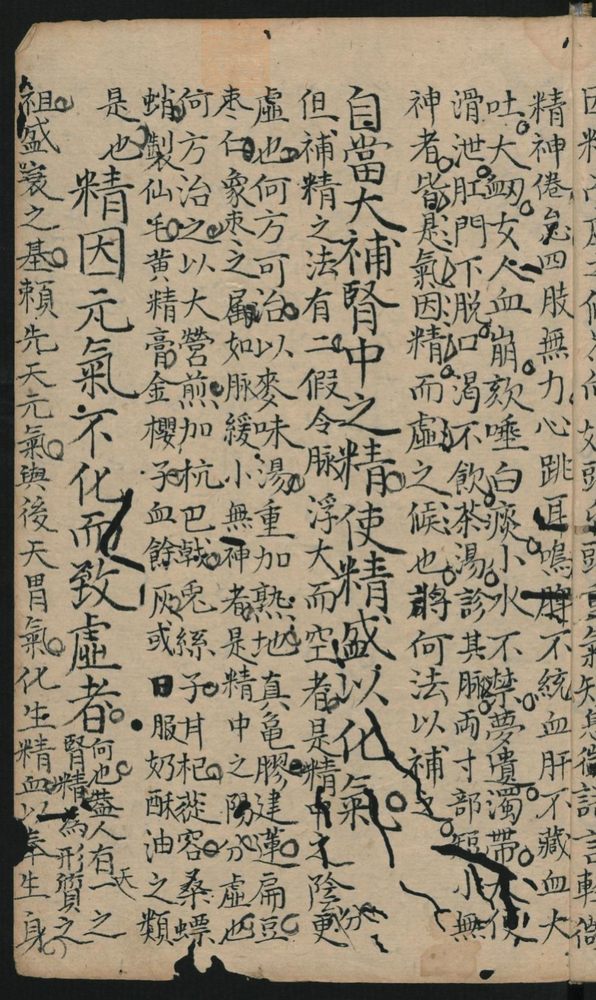 精神倦怠四肢無力心跳耳鳴脾不統血肝不藏血大
吐大衂女人血崩欬唾白痰小水不禁夢遺濁帶大便
滑泄肛門下脫口渴不飲茶湯診其脈兩寸部短小無
神者皆是氣因精而虛之候也將何法以補之
自當大補腎中之精使精盛以化氣
但補精之法有二假令脈浮大而空者是精中之陰分更
虛也何方可治以麥味湯重加熟地真龜膠建蓮扁豆
枣仁象枣之屬如脈緩小無神者是精中之陽分虛也
何方治之以大營煎加杭巴戟兎絲子甘杞蓯容桑螵
蛸製仙毛黄精膏金櫻子血餘灰或日服奶酥油之類
是也
精因元氣不化而致虛者
何也蓋人有一之
天
腎精為形質之
祖盛衰之基賴先天元氣與後天胃氣化生精血以奉生身